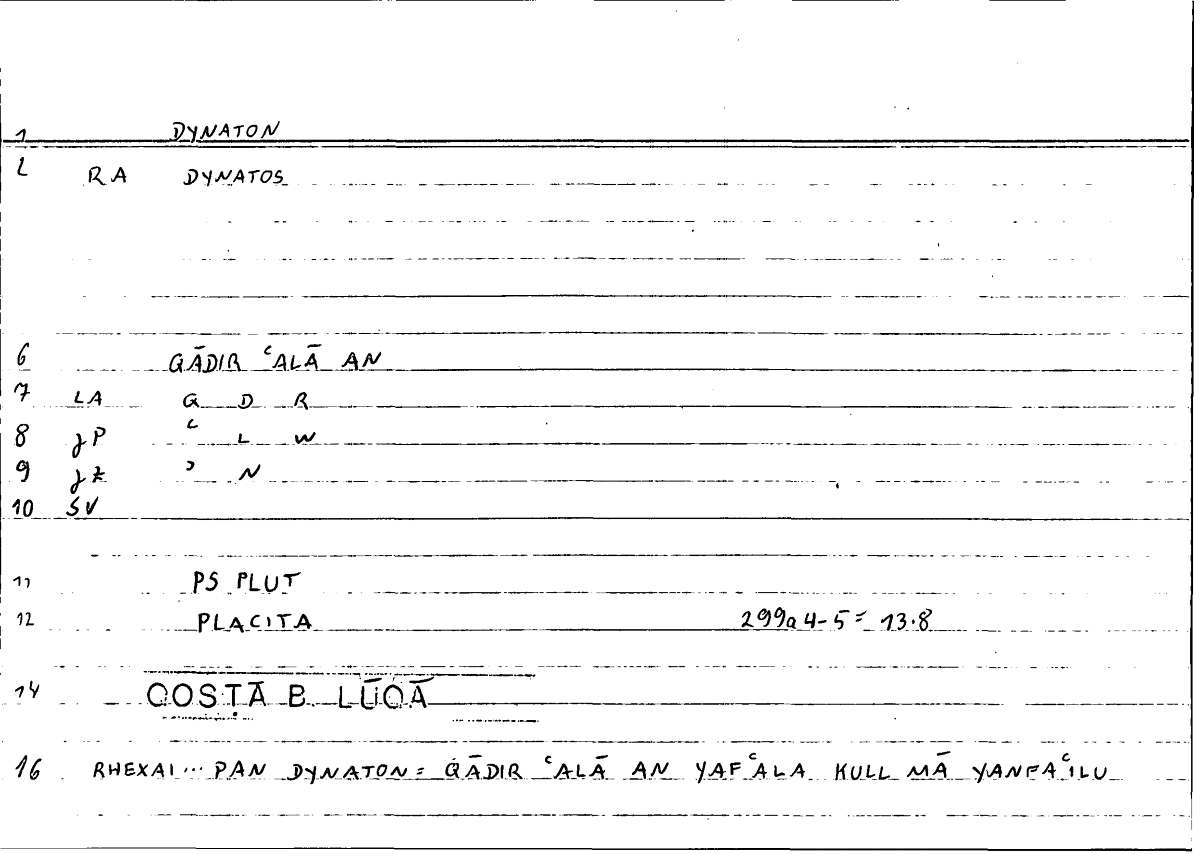 1 DYNATON
2 RA DYNATOS
6 QĀDIR ʿALĀ AN
7 LA Q D R
8 ʿ L W
9 ʾ N
10 SV
11 PS PLUT
12 PLACITA 299a4-5 = 13.8
14 QOSṬĀ B. LŪQĀ
16 RHEXAI... PAN DYNATON = QĀDIR ʿALĀ AN YAFʿALA KULL MĀ YANFAʿILU